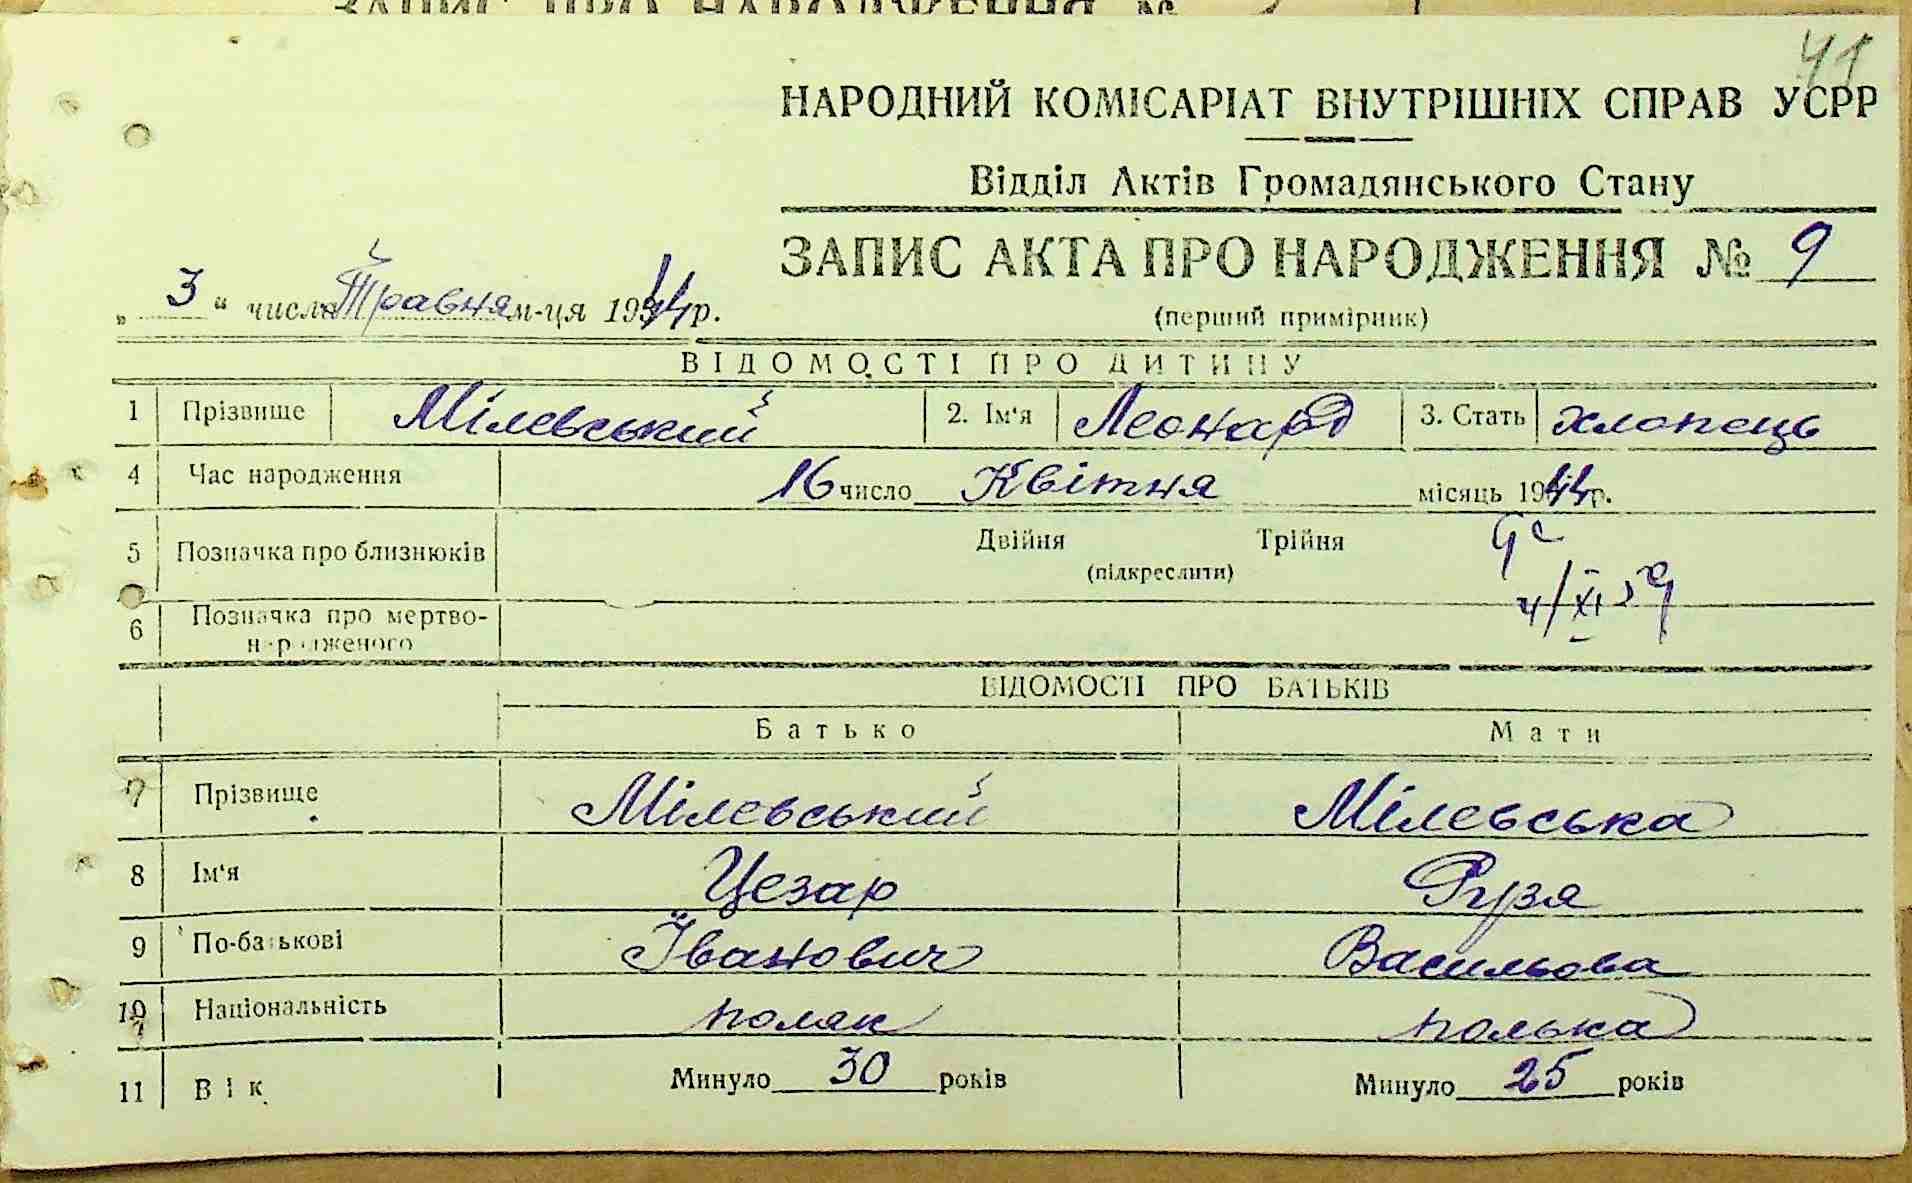 41
НАРОДНИЙ КОМІСАРІАТ ВНУТРІШНІХ СПРАВ УСРР
Відділ Актів Громадянського Стану
ЗАПИС АКТА ПРО НАРОДЖЕННЯ № 9
(перший примірник)
„ 3 “ числа Травня м-ця 1944 р.
ВІДОМОСТІ ПРО ДИТИНУ
1 Прізвище Мілевський 2. Ім'я Леонард 3. Стать хлопець
4 Час народження 16 число Квітня місяць 1944 р.
5 Позначка про близнюків Двійня Трійня
(підкреслити)
6 Позначка про мертво-
народженого
ВІДОМОСТІ ПРО БАТЬКІВ
Батько Мати
7 Прізвище Мілевський Мілевська
8 Ім'я Цезар Рузя
9 По-батькові Іванович Васильова
10 Національність поляк полька
11 Вік Минуло 30 років Минуло 25 років